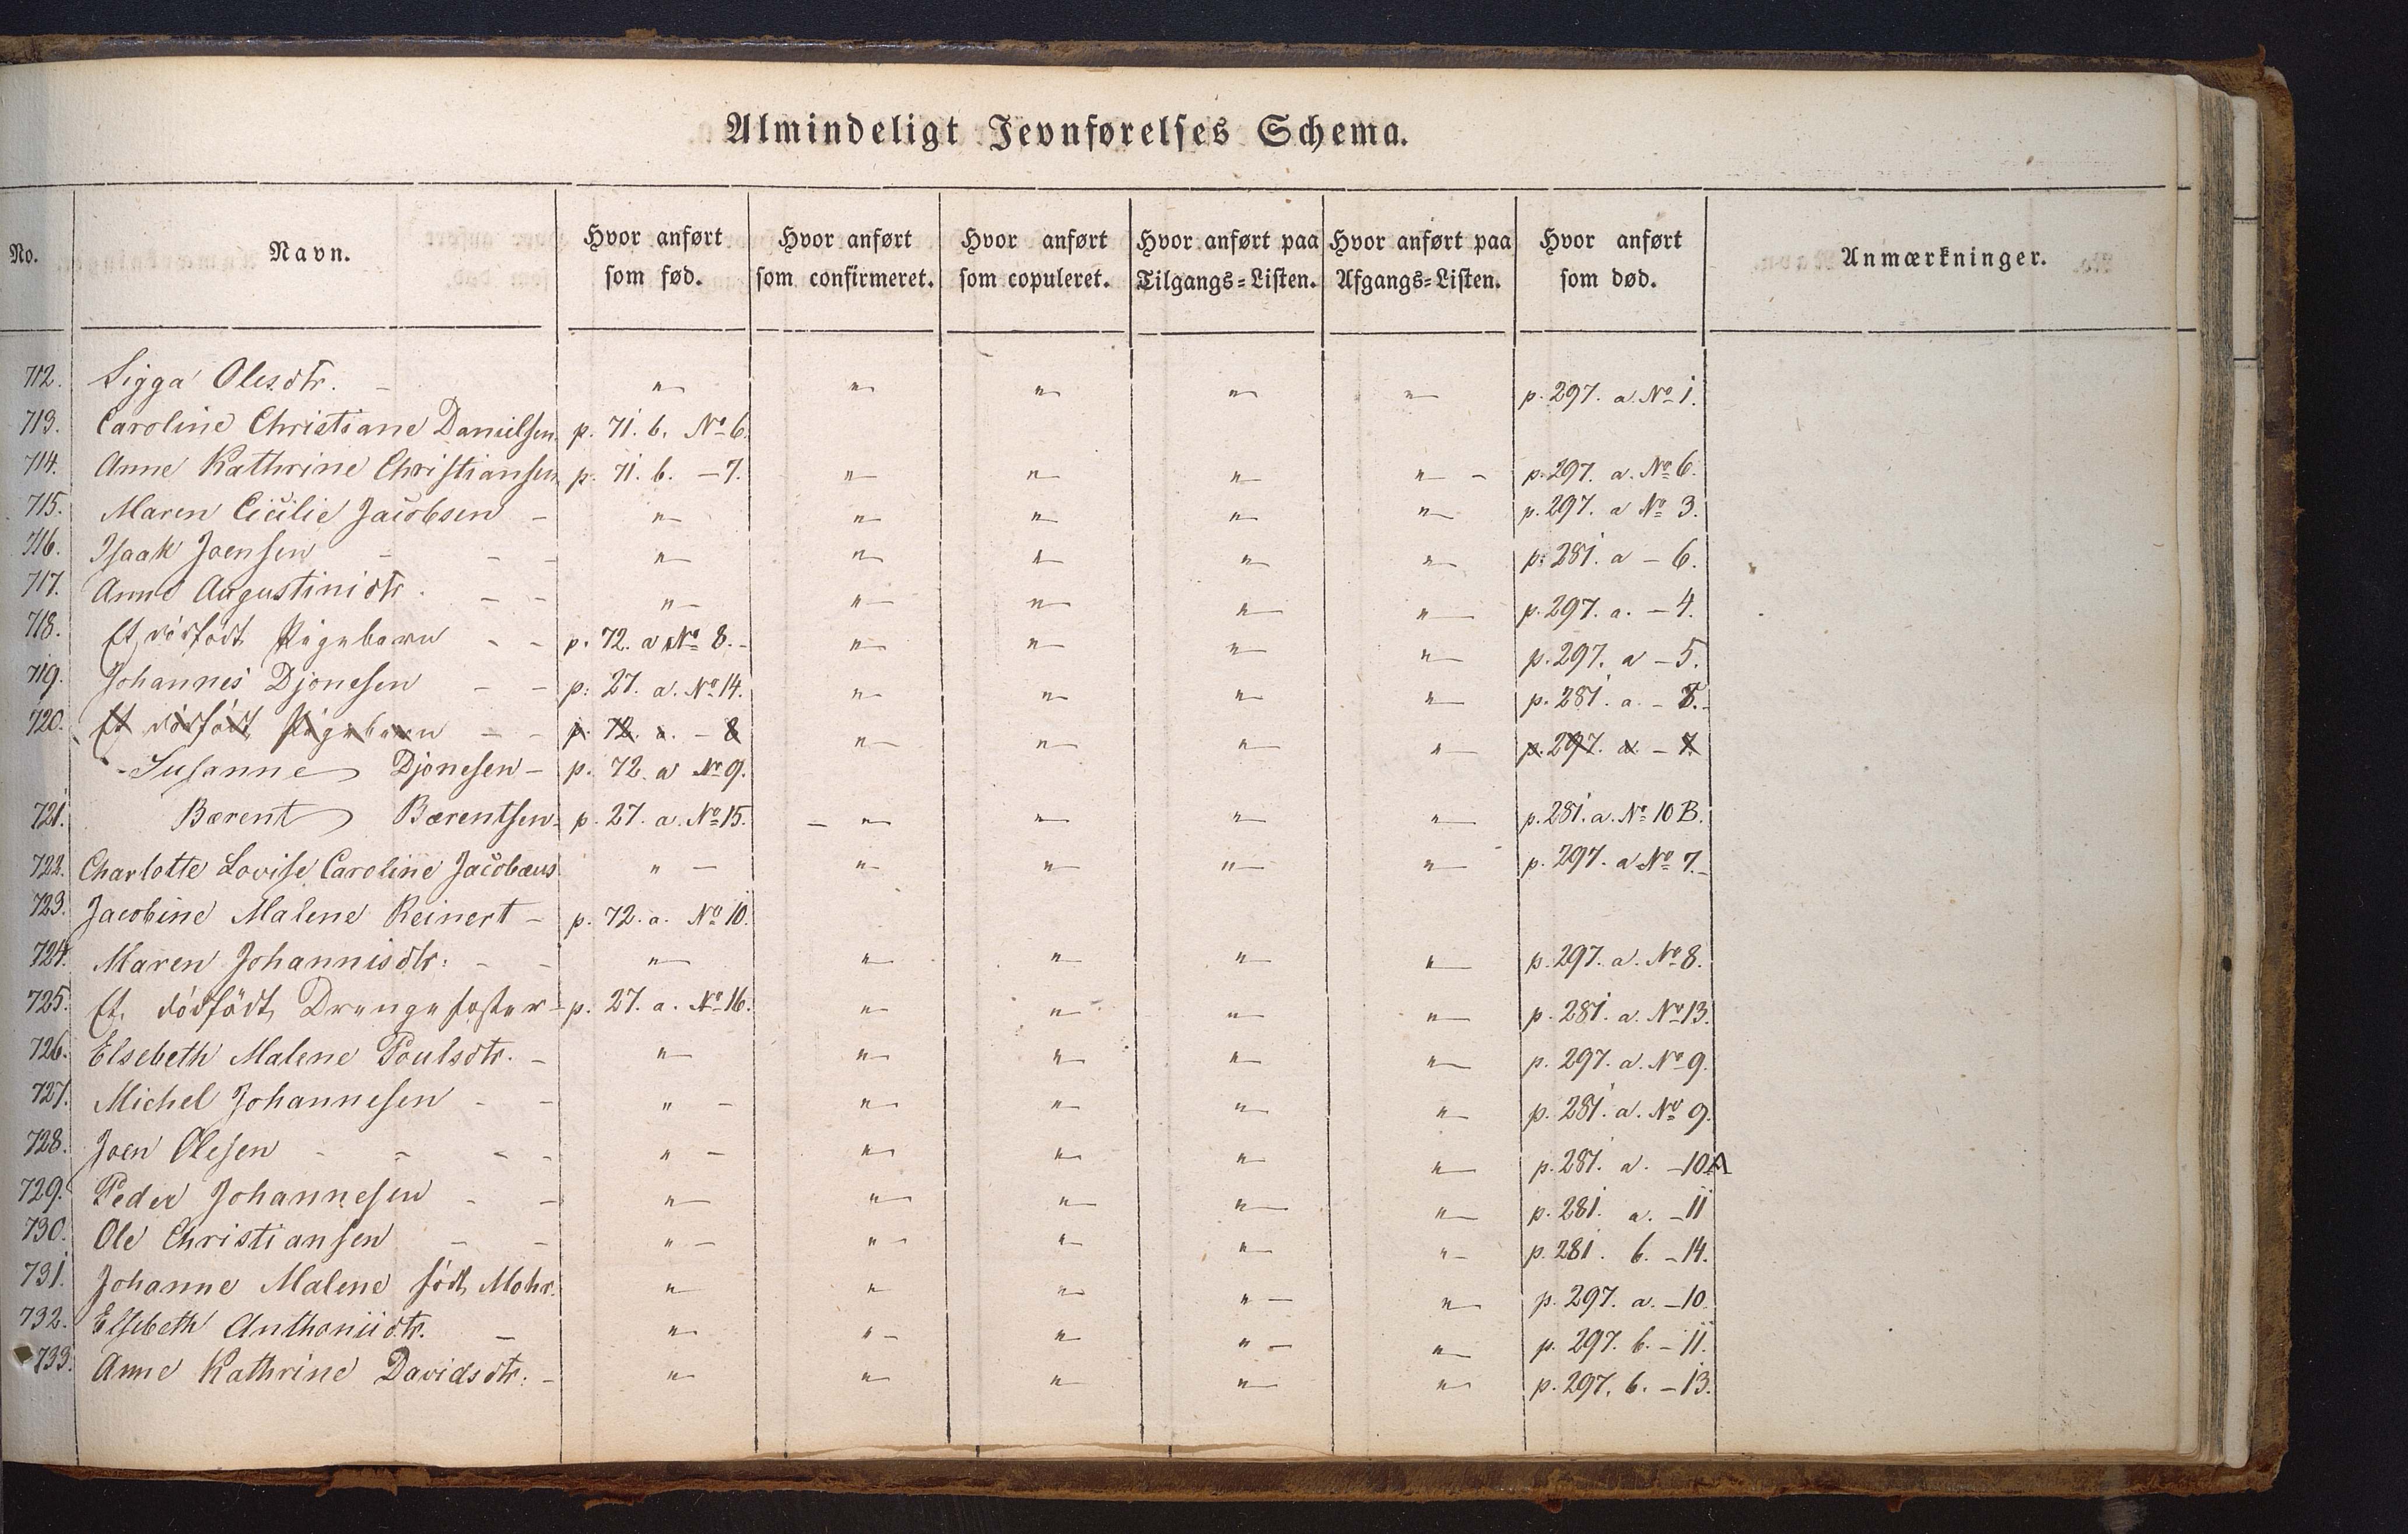 Almindeligt Jevnførelses Schema.
No. Navn. Hvor anført som fød. Hvor anført som confirmeret. Hvor anført som copuleret. Hvor anført paa Tilgangs=Listen. Hvor anført paa Afgangs=Listen. Hvor anført som død. Anmærkninger.
712. Sigga Olesdtr. - " " " " " p. 297. a. No 1.
713. Caroline Christiane Danielsen p. 71. b. No 6.
714. Anne Kathrine Christiansen p. 71. b. - 7. " " " " - p. 297. a. No 6.
715. Maren Cicilie Jacobsen - " " " " " p. 297. a No 3.
716. Isaak Joensen - - - " " " " " p: 281. a - 6.
717. Anne Augustinidtr. - - " " " " " p. 297. a. - 4.
718. Et dødfødt Pigebarn - - p. 72. a No 8. - " " " " p. 297. a - 5.
719. Johannes Djonesen - - p: 27. a. No 14. " " " " p. 281. a. - 8. -
720. Et dødfødt Pigebarn - - p. 72. a. - 8 " " " " p. 297. a - 7.
- Susanne Djonesen - p. 72. a No 9.
721. Bærent Bærentsen - p. 27. a. No 15. - " " " " p. 281. a. No 10 B.
722. Charlotte Lovise Caroline Jacobæus " - " " " " p. 297. a No 7. -
723. Jacobine Malene Reinert - p. 72. a. No 10.
724. Maren Johannisdtr: - - " " " " " p. 297. a. No 8.
725. Et dødfødt Drengefoster - p. 27. a. No 16. " " " " p. 281. a. No 13.
726. Elsebeth Malene Poulsdtr. - " " " " " p. 297. a. No 9.
727. Michel Johannesen - - " - " " " " p. 281. a. No 9.
728. Joen Olesen - - - - " - " " " " p. 281. a. - 10. A
729. Peder Johannesen - - " " " " " p. 281. a. - 11
730. Ole Christiansen - - " - " " " " - p. 281. b. - 14.
731. Johanne Malene født Mohr. " " " " - " p. 297. a. - 10.
732. Elsebeth Anthoniidtr. - " " - " " - " p. 297. b. - 11.
733. Anne Kathrine Davidsdtr: - " " " " " p. 297. b. - 13.